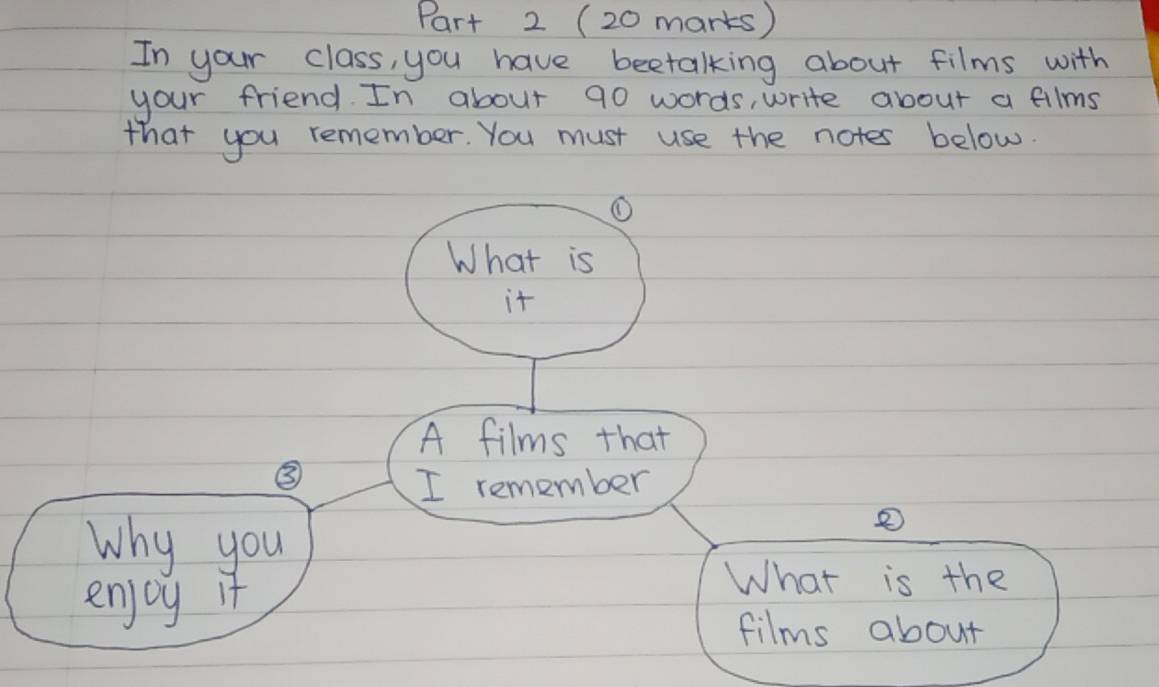 Part 2 (20 marks)
In your class, you have beetalking about films with
your friend. In about 90 words, write about a films
that you remember. You must use the notes below.
①
What is
it
A films that
I remember
③
Why you
enjoy it
②
What is the
films about